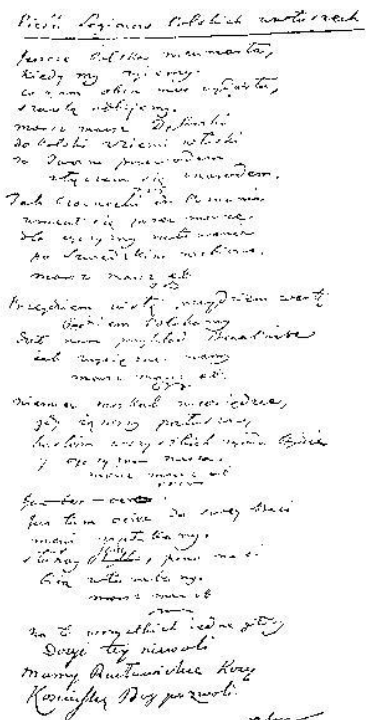 Pieśń Legionów Polskich we Włoszech
Jeszcze Polska nie umarła,
kiedy my żyjemy.
co nam obca moc wydarła,
szablą odbijemy.
marsz marsz Dąbrowski
do Polski z ziemi włoski
za Twoim przewodem
złączem się z narodem.
Jak Czarnecki do Poznania
wracał się przez morze
dla ojczyzny ratowania
po szwedzkim rozbiorze.
marsz marsz etc
Przejdziem Wisłę przejdziem Wartę
będziem Polakami
dał nam przykład Bonaparte
jak zwyciężać mamy
marsz marsz etc.
Niemiec, Moskal nie osiędzie,
gdy jąwszy pałasza,
hasłem wszystkich zgoda będzie
y ojczyzna nasza.
marsz marsz etc
Już tam ociec do swey Basi
mówi zapłakany,
słuchay jeno, pono nasi
biią w tarabany.
marsz marsz etc
Na to wszystkich iedne głosy
Dosyć tey niewoli
mamy Racławickie Kosy
Kościuszkę Bóg pozwoli.